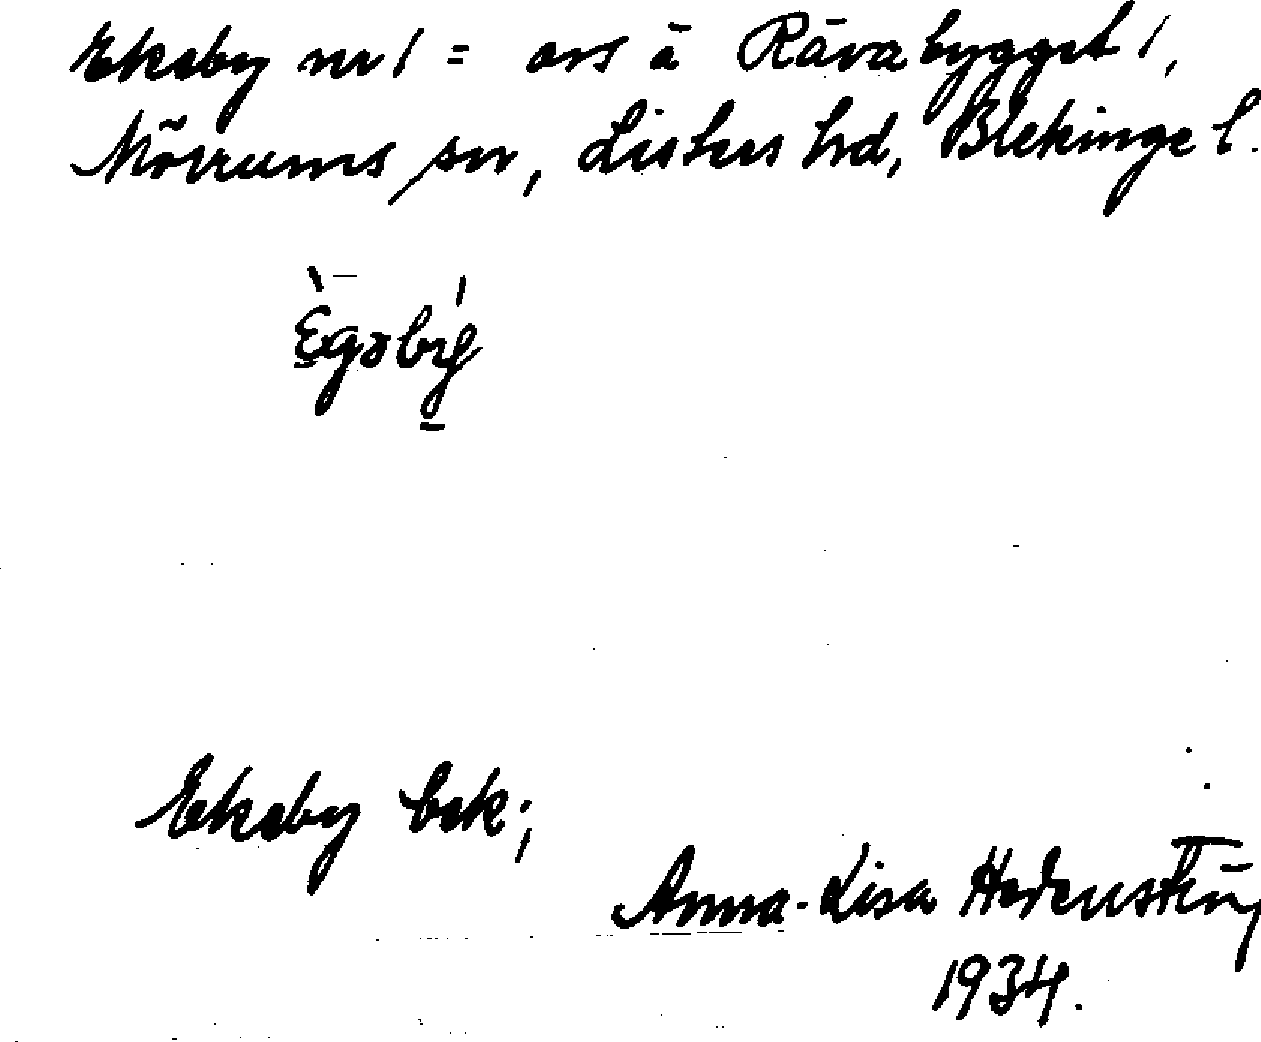 Ekeby nr 1 = avs å Rävabygget 1,
Mörrums sn, Listers hd, Blekinge l.
Ègəbý
Ekeby bek;
Anna-Lisa
1934.